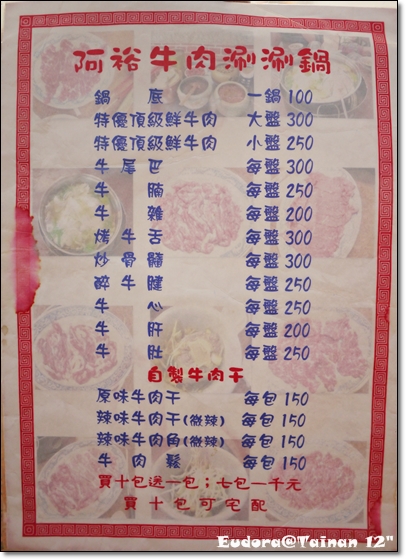 阿裕牛肉涮涮鍋
鍋底 一鍋 100
特優頂級鮮牛肉 大盤 300
特優頂級鮮牛肉 小盤 250
牛尾巴 每盤 300
牛腩 每盤 250
牛雜 每盤 200
烤牛舌 每盤 300
炒骨髓 每盤 300
醉牛腱 每盤 250
牛心 每盤 250
牛肝 每盤 200
牛肚 每盤 250
自製牛肉干
原味牛肉干 每包 150
辣味牛肉干(微辣) 每包 150
辣味牛肉角(微辣) 每包 150
牛肉鬆 每包 150
買十包送一包；七包一千元
買十包可宅配
Eudora@Tainan 12"